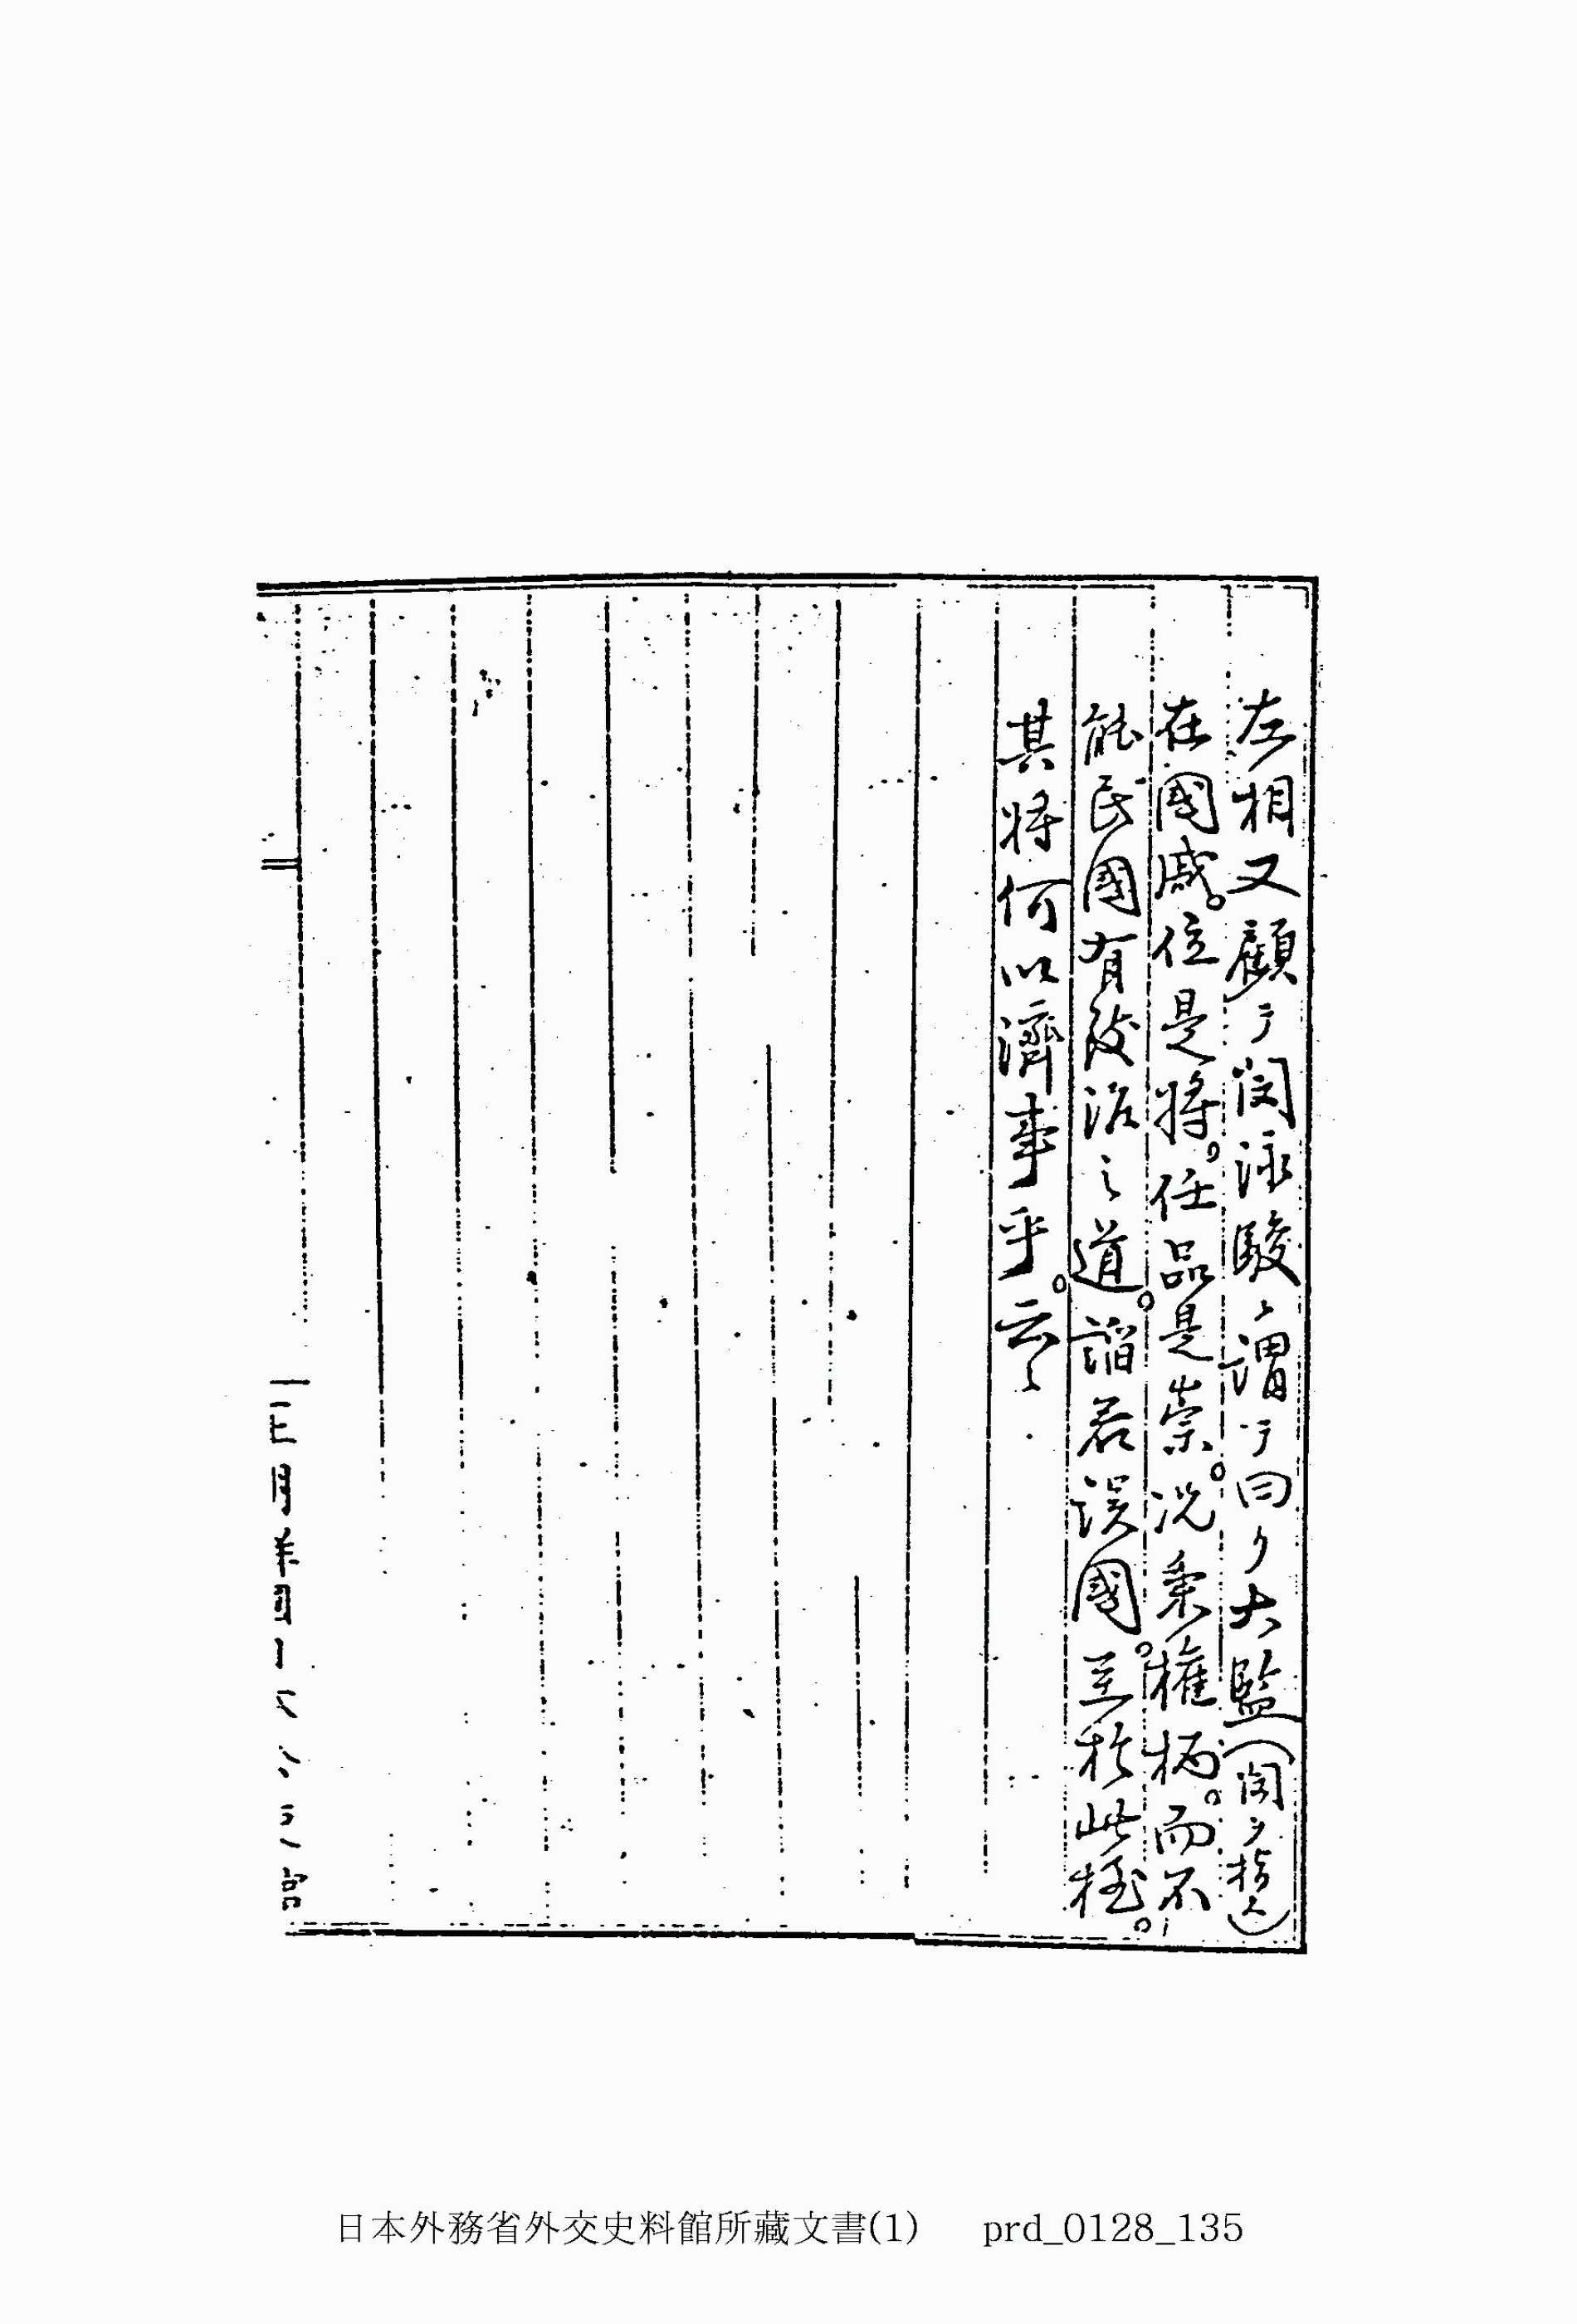 左相又顧テ閔泳駿ヽ謂テ曰ク大監(閔ヲ指ス)
在國戚。位是將。任品是崇。況秉權柄。而不
能民國有致治之道。謟君誤國。至於此極。
其將何以濟事乎。云々
日本外務省外交史料館所藏文書(1) prd_0128_135